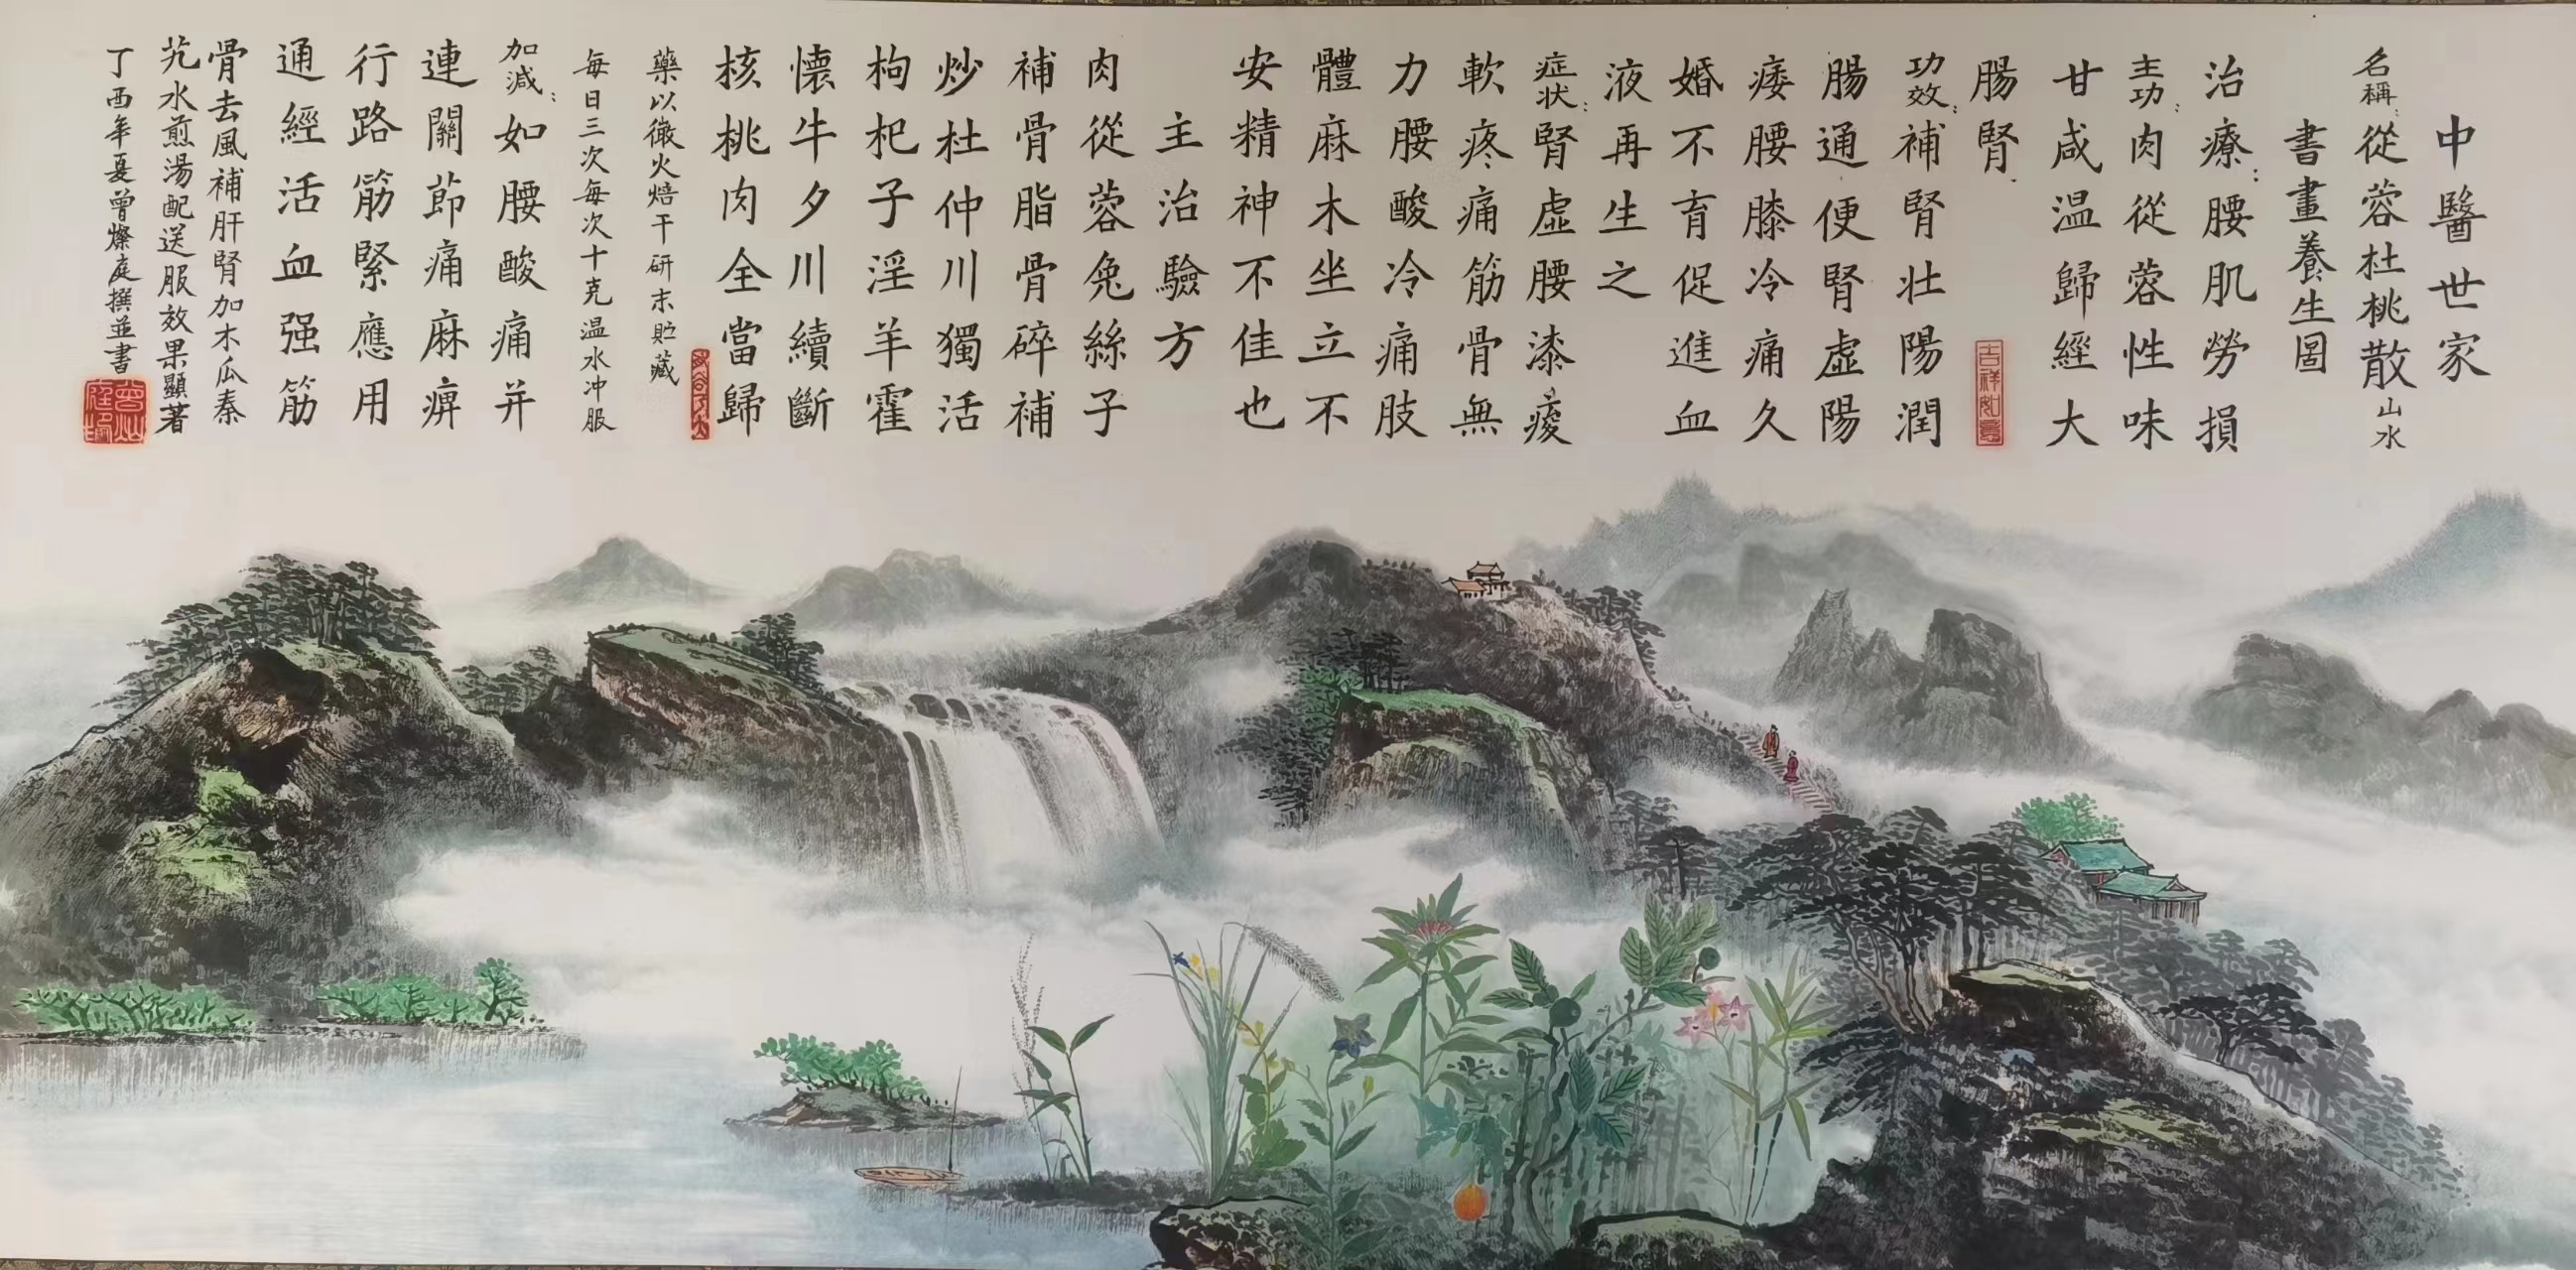 中醫世家
名稱:從蓉杜桃散山水
書畫養生圖
治療:腰肌勞損
主功:肉從蓉性味
甘咸温歸經大
腸腎
吉祥如意
功效:補腎壯陽潤
腸通便腎虛陽
痿腰膝冷痛久
婚不育促進血
液再生之
症状:腎虛腰漆痠
軟疼痛筋骨無
力腰酸冷痛肢
體麻木坐立不
安精神不佳也
主治驗方
肉從蓉兔絲子
補骨脂骨碎補
炒杜仲川獨活
枸杞子淫羊霍
懐牛夕川續斷
核桃肉全當歸
藥以微火焙干研末贮藏
每日三次每次十克温水冲服
加減:如腰酸痛并
連關節痛麻痹
行路筋緊應用
通經活血强筋
骨去風補肝腎加木瓜秦
艽水煎湯配送服效果顯著
丁酉年夏曾燦庭撰並書